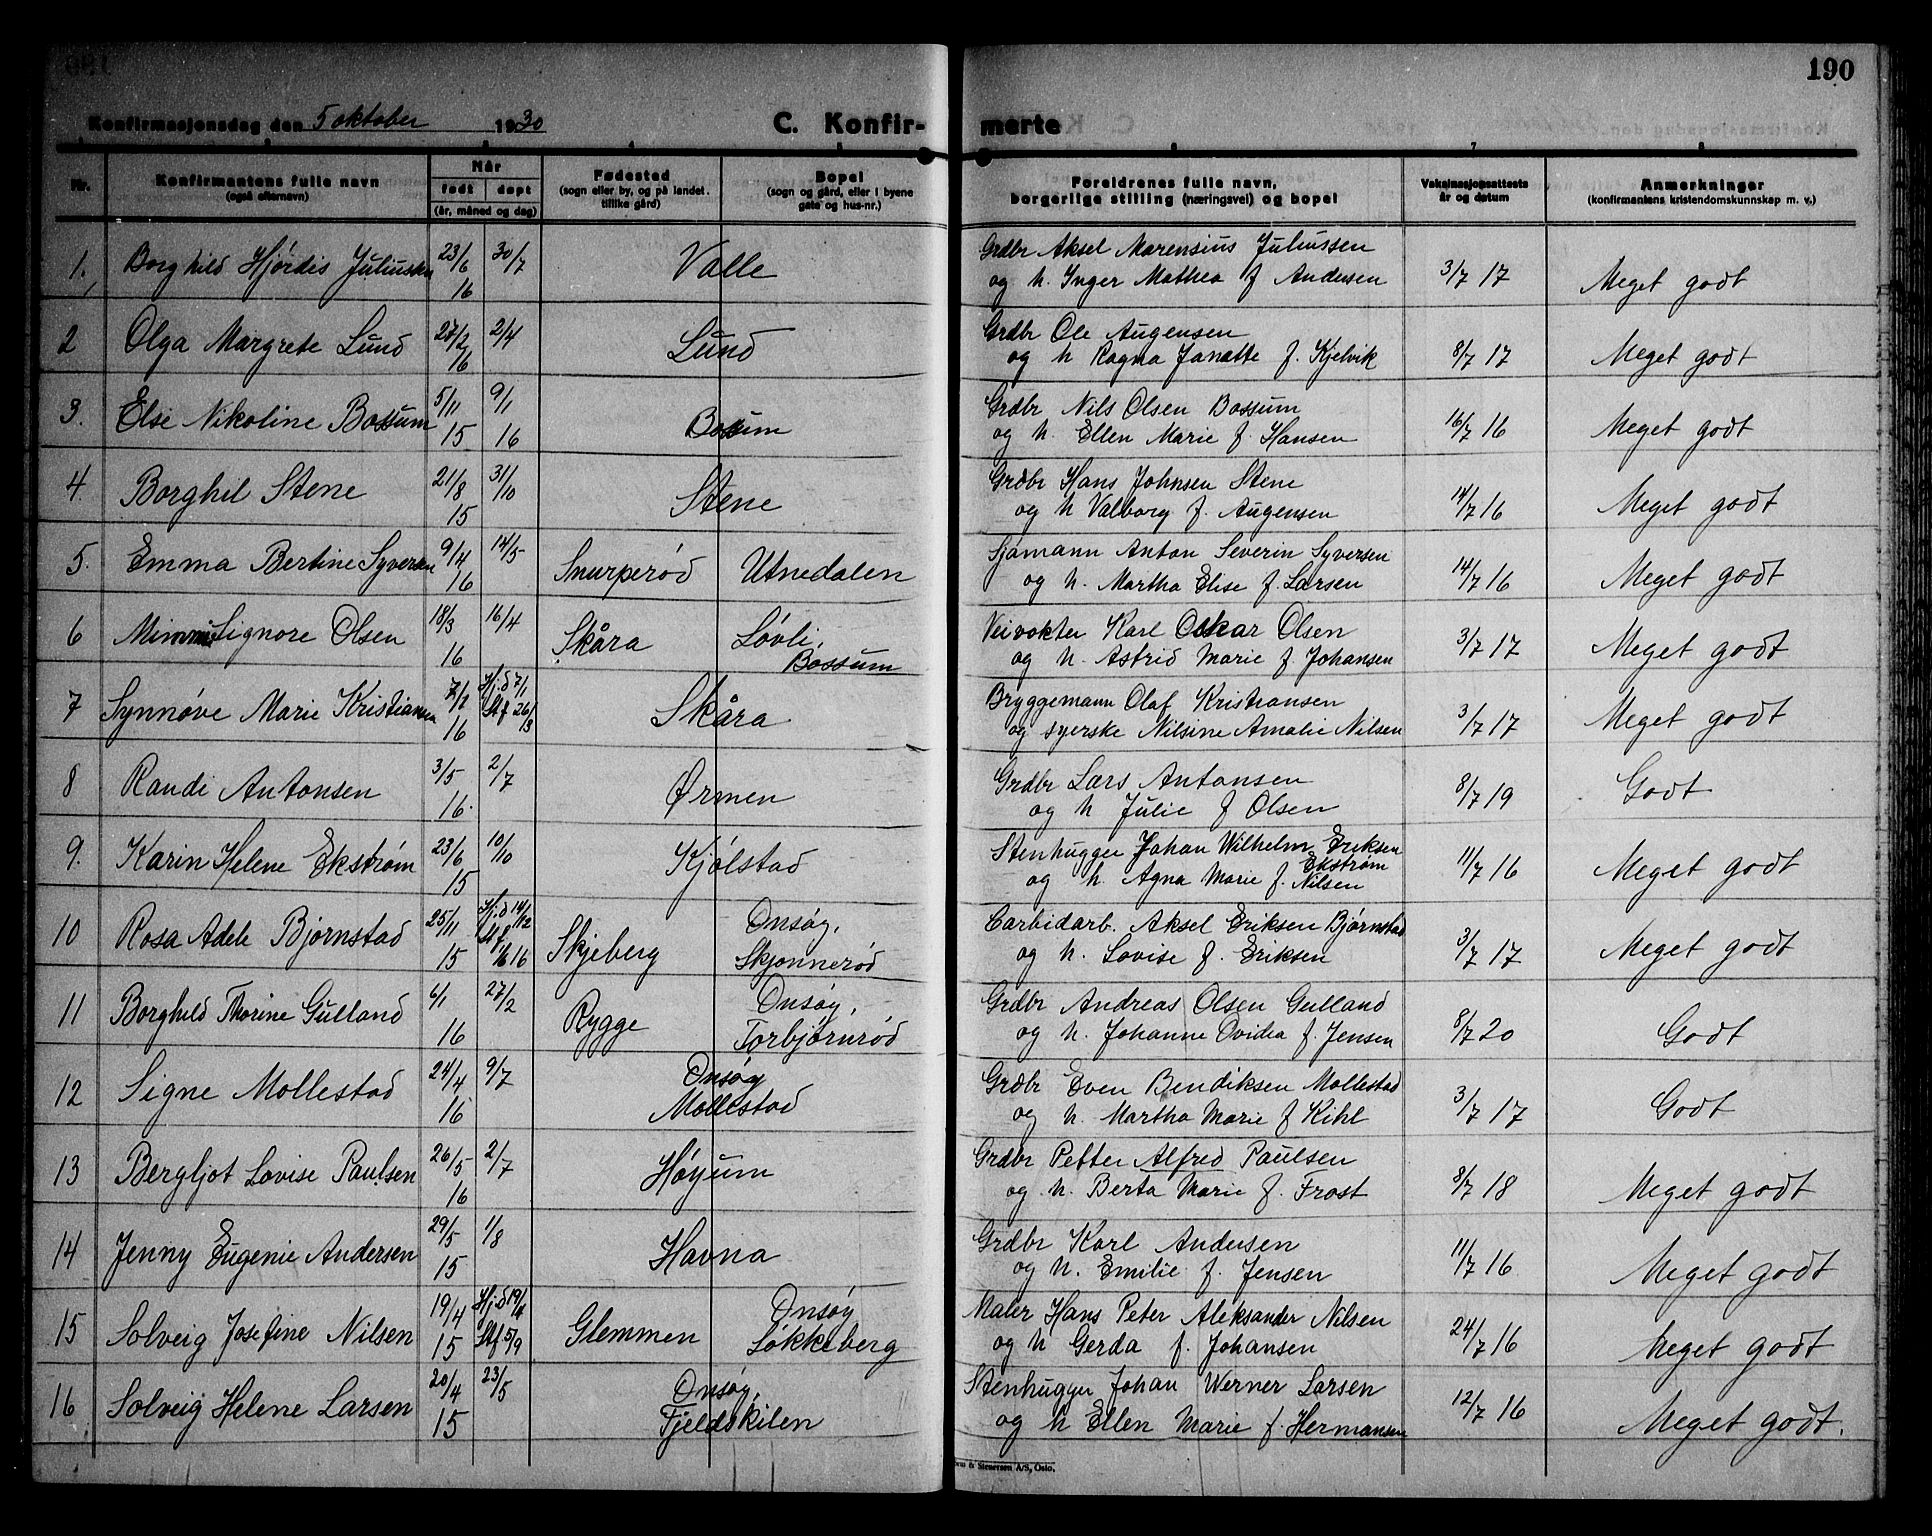 190
Konfirmasjonsdag den 5 oktober 1930 C. Konfir- merte
Nr. Konfirmantens fulle navn (også efternavn) Når født døpt (år, måned og dag) Fødested (sogn eller by, og på landet. tillike gård) Bopel (sogn og gård, eller i byene gate og hus-nr.) Foreldrenes fulle navn, borgerlige stilling (næringsvei) og bopel Vaksinasjonsattests år og datum Anmerkninger (konfirmantens kristendomskunnskap m. v.)
1. Borghild Hjørdis Juliussen 23/6 16 30/7 Valle Grdbr Aksel Marensius Juliussen 3/7 17 Meget godt
og h. Inger Mathea f Andersen
2 Olga Margrete Lund 27/2 16 2/4 Lund Grdbr Ole Augensen 8/7 17 Meget godt
og h Ragna Janette f. Kjelvik
3. Else Nikoline Bossum 5/11 15 9/1 16 Bossum Grdbr Nils Olsen Bossum 16/7 16 Meget godt
og h. Ellen Marie f. Hansen
4. Borghil Stene 21/8 15 31/10 Stene Grdbr Hans Johnsen Stene 14/7 16 Meget godt
og h Valborg f. Augensen
5. Emma Bertine Syversen 9/4 16 14/5 Snurperød Utnedalen Sjømann Anton Severin Syversen 14/7 16 Meget godt
og h. Martha Elise f. Larsen
6 Mimmi Signore Olsen 18/3 16 16/4 Skåra Løvli, Bossum Veivokter Karl Oskar Olsen 3/7 17 Meget godt
og h. Astrid Marie f Johansen
7 Synnøve Marie Kristiansen 7/1 16 Hj.d 7/1 St f 26/3 Skåra Bryggemann Olaf Kristiansen 3/7 17 Meget godt
og syerske Nilsine Amalie Nilsen
8 Randi Antonsen 3/5 16. 2/7 Ørmen Grdbr Lars Antonsen 8/7 19 Godt
og h Julie f Olsen
9. Karin Helene Ekstrøm 23/6 15 10/10 Kjølstad Stenhugger Johan Wilhelm Eriksen Ekstrøm 11/7 16 Meget godt
og h. Agna Marie f. Nilsen
10 Rosa Adele Bjørnstad 25/11 15 Hj.d 14/12 St f 16 Skjeberg Onsøy, Skjønnerød Carbidarb. Aksel Eriksen Bjørnstad 3/7 17 Meget godt
og h. Lovise f. Eriksen
11 Borghild Thorine Gulland 6/1 16 27/2 Rygge Onsøy, Torbjørnrød Grdbr Andreas Olsen Gulland 8/7 20 Godt
og h. Johanne Ovidia f. Jensen
12 Signe Mollestad 24/4 16 9/7 Onsøy Mollestad Grdbr Even Bendiksen Mollestad 3/7 17 Godt
og h. Martha Marie f Kihl
13 Bergljot Lovise Paulsen 26/5 16 2/7 Høyum Grdbr Petter Alfred Paulsen 8/7 18 Meget godt
og h. Berta Marie f. Frost
14 Jenny Eugenie Andersen 29/5 15 1/8 Havna Grdbr Karl Andersen 11/7 16 Meget godt
og h. Emilie f. Jensen
15 Solveig Josefine Nilsen 19/4 15 Hj.d 19/4 St f 5/9 Glemmen Onsøy Løkkeberg Maler Hans Peter Aleksander Nilsen 24/7 16 Meget godt
og h Gerda f. Johansen
16 Solveig Helene Larsen 20/4 15 23/5 Onsøy, Fjeldskilen Stenhugger Johan Werner Larsen 12/7 16 Meget godt.
og h Ellen Marie f Hermansen
& Stenersen A/S, Oslo.